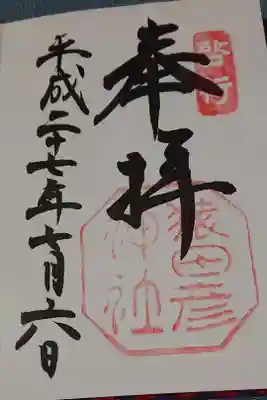 啓行
奉拝
猿田彦
神社
平成二十七年七月六日